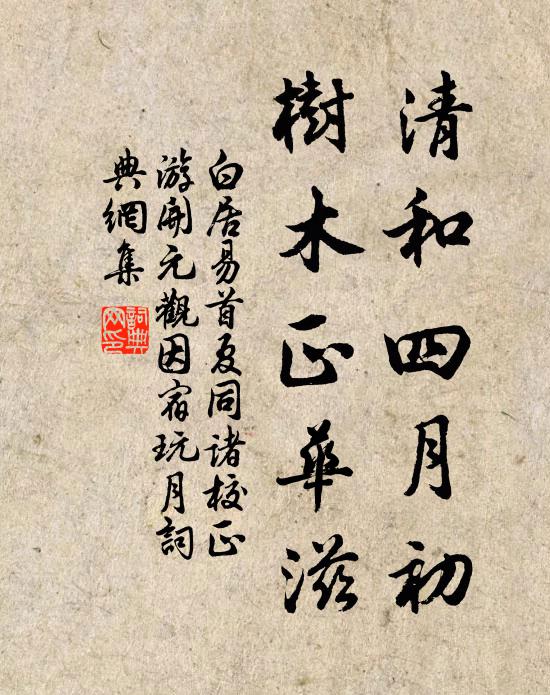 清和四月初
樹木正華滋
白居易首夏同諸校正
游開元觀因宿玩月詞
典網集
詞典
網印